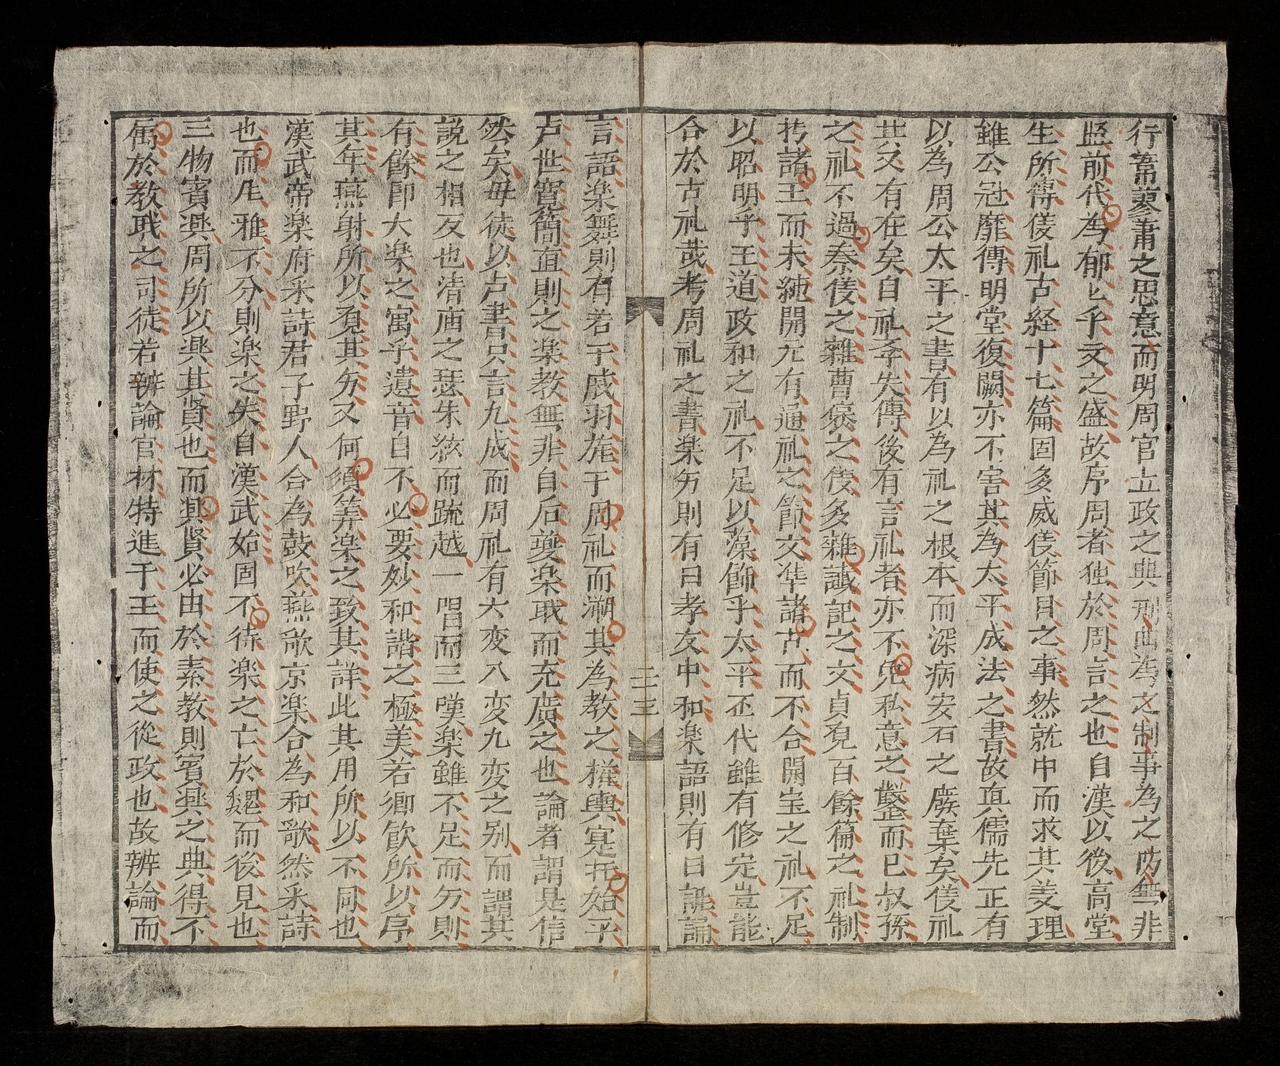 行葦蓼蕭之思意而明周官立政之典制曲為之制事為之防無非
監前代為郁〻乎文之盛故序周者独於周言之也自漢以後高堂
生所傳儀礼古経十七篇固多威儀節目之事然就中而求其義理
雖公冠靡傳明堂復闕亦不害其為太平成法之書故真儒先正有
以為周公太平之書有以為礼之根本而深病安石之廢棄矣儀礼
共又有在矣自礼季失傳後有言礼者亦不免私意之鑿而已叔孫
之礼不過秦儀之雜曹褒之儀多雜讖記之文貞覌百餘篇之礼制
於諸王而未純開元有通礼之節文準諸古而不合開宝之礼不足
以昭明乎王道政和之礼不足以藻飾乎太平歴代雖有修定豈能
合於古礼哉考周礼之書楽労則有曰孝友中和楽語則有曰諷論
二十三
言語楽舞則有若干戚羽旄于周礼而溯其為教之権輿寔托始乎
虞世寛簡直則之楽教無非自后夔楽職而充廣之也論者謂是信
然矣毋徒以虞書只言九成而周礼有六変八変九変之别而謂其
説之相反也清庙之瑟朱絃而疏越一唱而三嘆楽雖不足而労則
有餘即大楽之寓乎遺音自不必要妙和諧之極美若郷飲所以序
其年燕射所以覌其労又何須筭楽之致其詳此其用所以不同也
漢武帝楽府采詩君子野人合為鼓吹燕歌京楽合為和歌然采詩
也而㞢雅不分則楽之失自漢武始固不待楽之亡於魏而後見也
三物賓興周所以興其賢也而興賢必由於素教則賓興之典得不
属於教職之司徒若辨論官材特進于王而使之從政也故辨論而